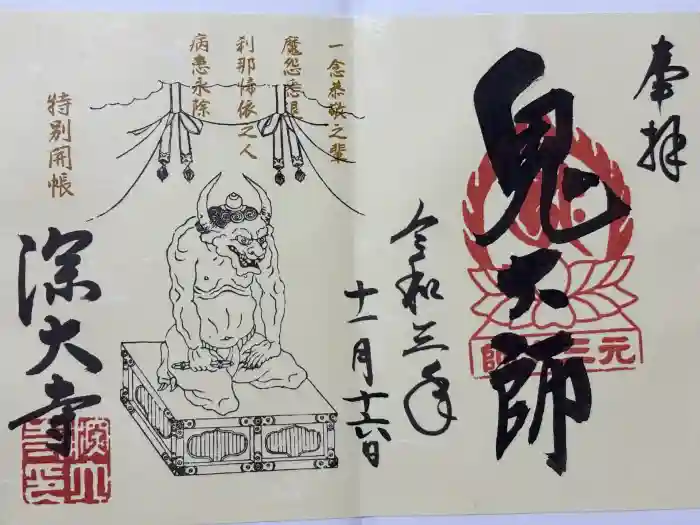 奉拝
鬼大師
元三大師
令和三年
十一月十六日
一念恭敬之輩
魔怨悉退
刹那帰依之人
病患永除
特別開帳
深大寺